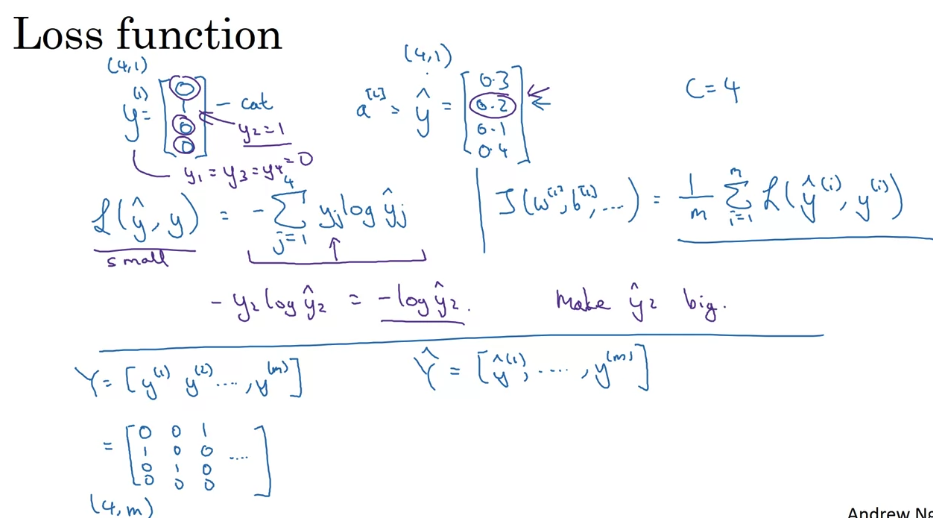 Loss function
(4,1)
(4,1)
y^{(1)} = [0 1 0 0] - cat
y_2 = 1
y_1 = y_3 = y_4 = 0
a^{[L]} = ŷ = [0.3 0.2 0.1 0.4]
C = 4
L(ŷ, y) = - Σ_{j=1}^{4} y_j log ŷ_j
small
J(w^{[1]}, b^{[1]}, ...) = 1/m Σ_{i=1}^{m} L(ŷ^{(i)}, y^{(i)})
- y_2 log ŷ_2 = - log ŷ_2.
Make ŷ_2 big.
Y = [y^{(1)} y^{(2)} ...., y^{(m)}]
Ŷ = [ŷ^{(1)}, ...., y^{(m)}]
= [0 0 1
1 0 0 ....
0 1 0
0 0 0]
(4,m)
Andrew Ng